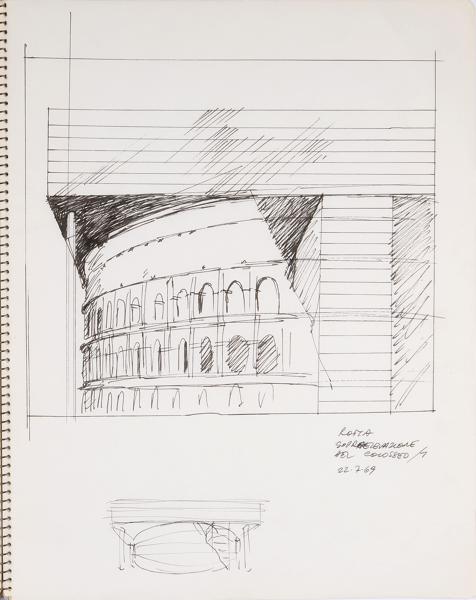 ROMA
SOPRAELEVAZIONE
DEL COLOSSEO/1
22.7.69